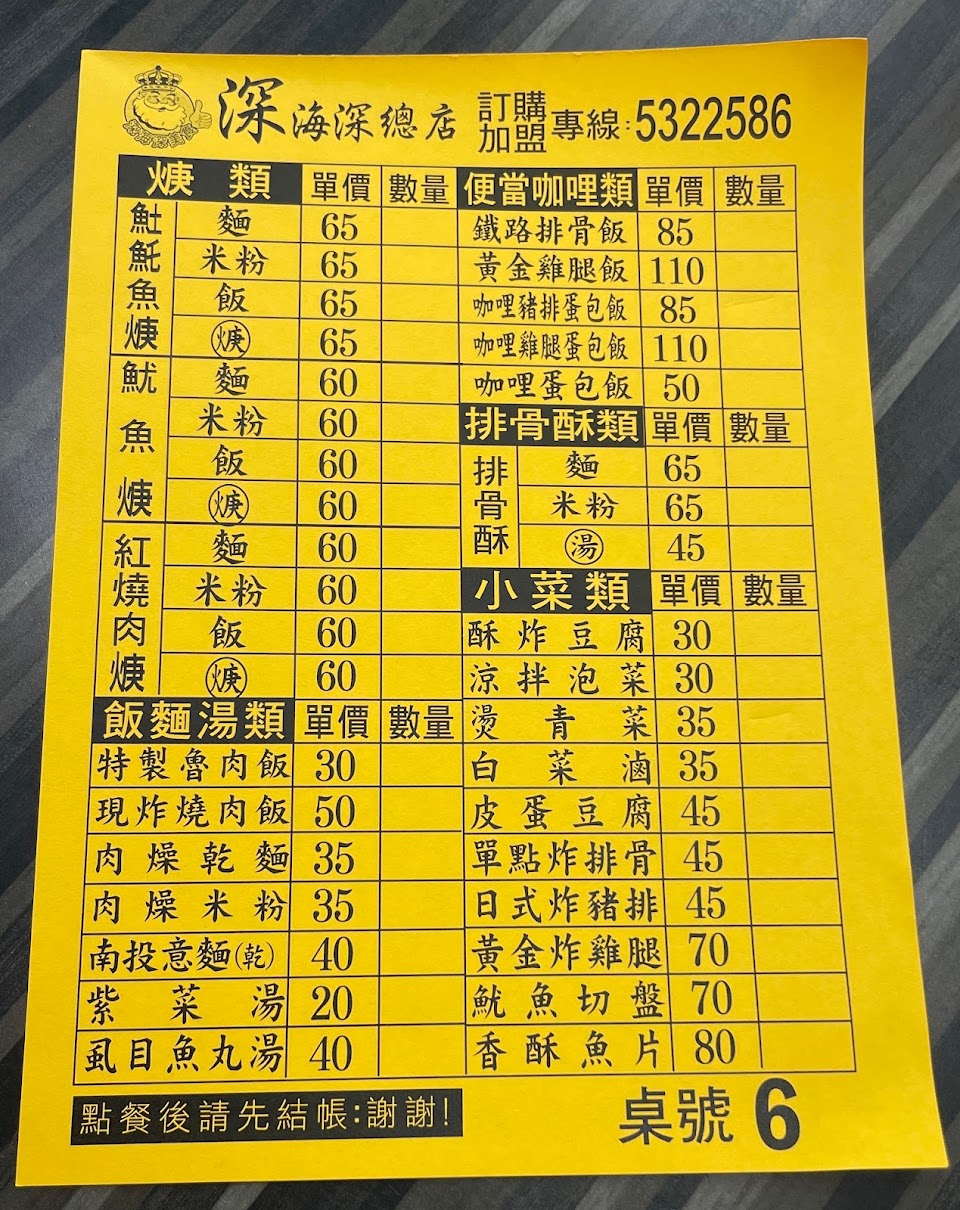 深海深總店 訂購加盟專線:5322586
焿類 單價 數量
魠魠魚焿
麵 65
米粉 65
飯 65
焿 65
魷魚焿
麵 60
米粉 60
飯 60
焿 60
紅燒肉焿
麵 60
米粉 60
飯 60
焿 60
飯麵湯類 單價 數量
特製魯肉飯 30
現炸燒肉飯 50
肉燥乾麵 35
肉燥米粉 35
南投意麵(乾) 40
紫菜湯 20
虱目魚丸湯 40
便當咖哩類 單價 數量
鐵路排骨飯 85
黃金雞腿飯 110
咖哩豬排蛋包飯 85
咖哩雞腿蛋包飯 110
咖哩蛋包飯 50
排骨酥類 單價 數量
排骨酥
麵 65
米粉 65
湯 45
小菜類 單價 數量
酥炸豆腐 30
涼拌泡菜 30
燙青菜 35
白菜滷 35
皮蛋豆腐 45
單點炸排骨 45
日式炸豬排 45
黃金炸雞腿 70
魷魚切盤 70
香酥魚片 80
點餐後請先結帳:謝謝!
桌號 6